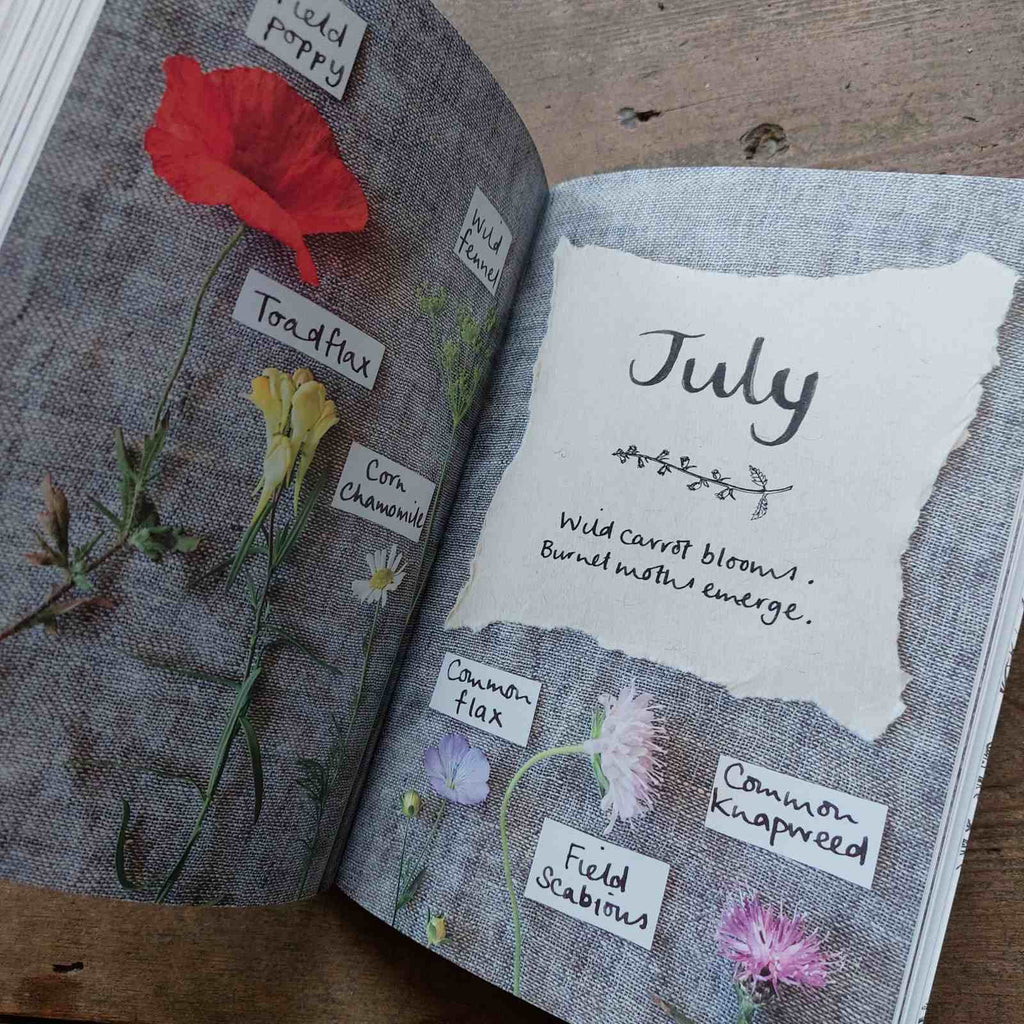 Field
poppy
Wild
fennel
Toadflax
Corn
Chamomile
July
Wild carrot blooms.
Burnet moths emerge.
Common
flax
Common
Knapweed
Field
Scabious